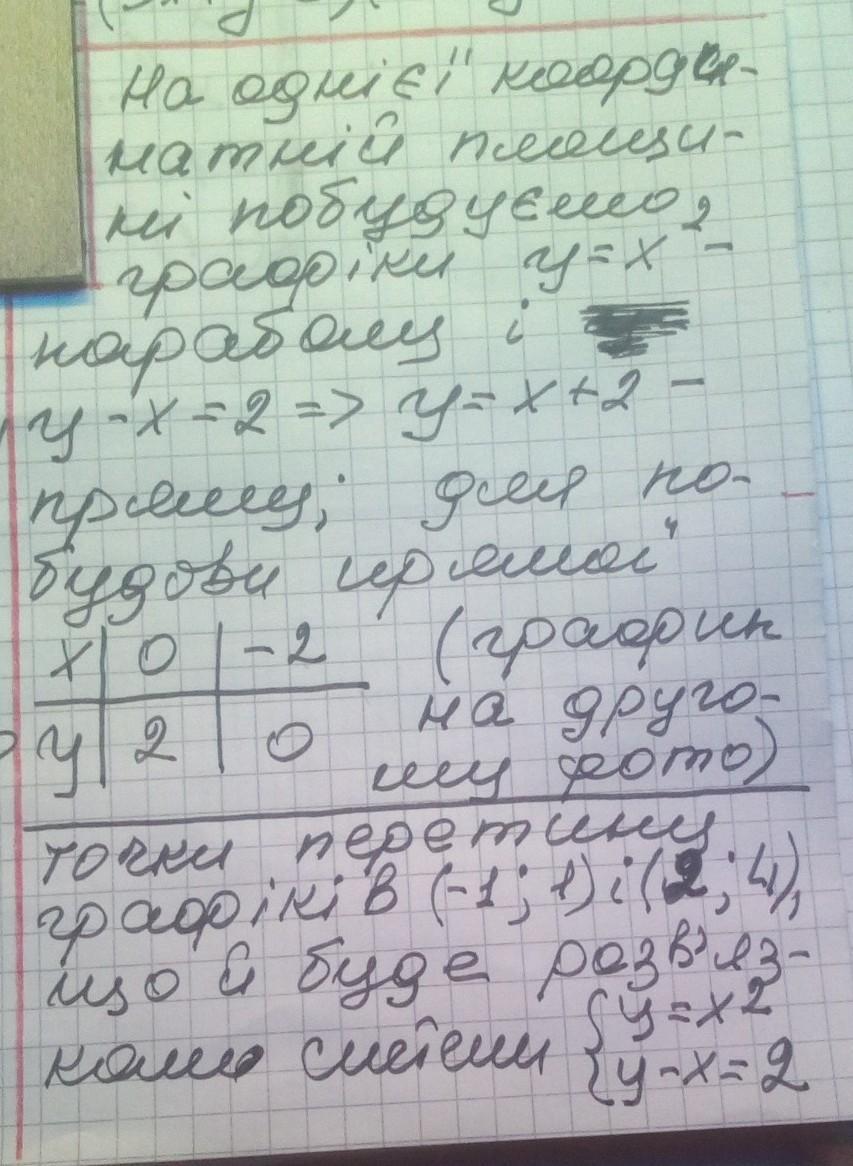 На однієї коорди-
натній площи-
ні побудуємо
графіки y = x² -
параболу і
y - x = 2 => y = x + 2 -
пряму; для по-
будови прямої
x | 0 | -2 (график
на друго-
y | 2 | 0 му фото)
точки перетину
графіків (-1; 1) і (2; 4),
що й буде розв'яз-
ками системи { y = x2
{ y - x = 2